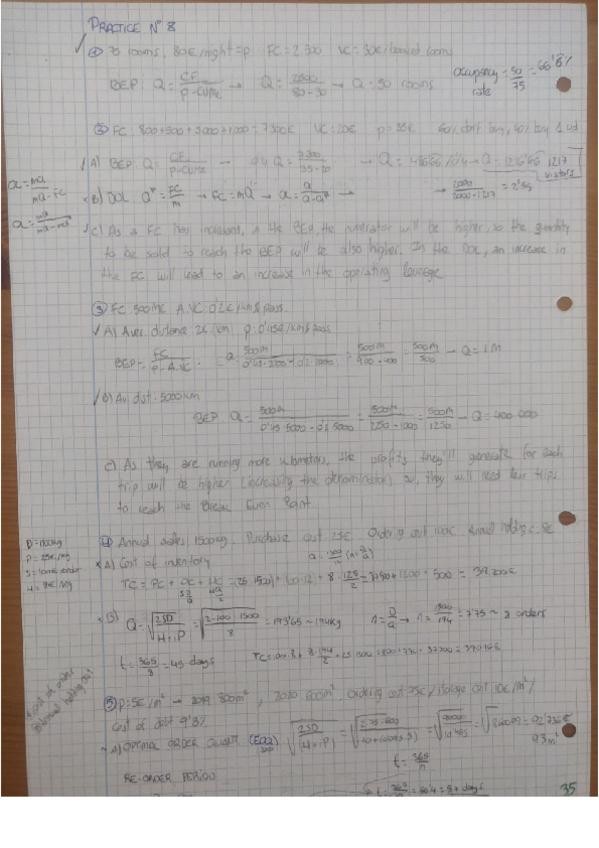 PRACTICE Nº 8
① 75 rooms, 80€/night = p FC = 2.500 VC = 30€/booked room
BEP: Q = CF / p - CVMe → Q = 2500 / 80-30 → Q = 50 rooms occupancy rate = 50/75 = 66'6%
② FC: 800+500+5000+1000 = 7300€ VC: 20€ p = 35€ 60% don't buy, 40% buy 1 ud
A) BEP: Q = CF / p - CVMe → 0'4Q = 7300 / 35-20 → Q = 486'66/0'4 → Q = 1216'66 1217 visitors
a = mQ / mQ-FC
B) DOL Q* = FC/m → FC = mQ* → a = Q / Q-Q* → 2000 / 2000-1217 = 2'55
a = mQ / mQ-mQ*
C) As a FC has increased, in the BEP, the numerator will be higher, so the quantity
to be sold to reach the BEP will be also higher. In the DOL, an increase in
the FC will lead to an increase in the operating leverage
③ FC 500M€ A.VC: 0'2€/km & pass.
A) Aver. distance 2000 km p: 0'45€/km & pass
BEP = FC / p - A.VC Q = 500M / 0'45·2000 - 0'2·2000 = 500M / 900-400 = 500M / 500 → Q = 1M
B) Av. dist: 5000km
BEP Q = 500M / 0'45·5000 - 0'2·5000 = 500M / 2250-1000 = 500M / 1250 → Q = 400.000
C) As they are running more kilometers, the profits they'll generate for each
trip will be higher (increasing the denominator), so, they will need less trips
to reach the Break Even Point
④ Annual sales 1500kg, Purchase cost 25€ Ordering cost 100€ Annual holding c. 8€
D = 1500kg
P = 25€/kg
S = 100€/order
H = 8€/kg
A) Cost of inventory
TC = PC + OC + HC = (25·1500) + (100·12) + 8·125/2 = 37500 + 1200 + 500 = 39.200€
B) Q = √2SD / H+iP = √2·100·1500 / 8 = 193'65 ~ 194kg n = D/Q → n = 1500/194 = 7'73 ~ 8 orders
t = 365/8 = 45 days TC = 100·8 + 8·194/2 + 25·1500
⑤ P = 5€/m² → 2019 800m², 2020 600m². Ordering cost 75€/ storage cost 10€/m²/
Cost of debt 9'8%
A) OPTIMAL ORDER QUANT. (EOQ) √2SD / H+iP
93m²
t = 365/n
RE-ORDER PERIOD
35